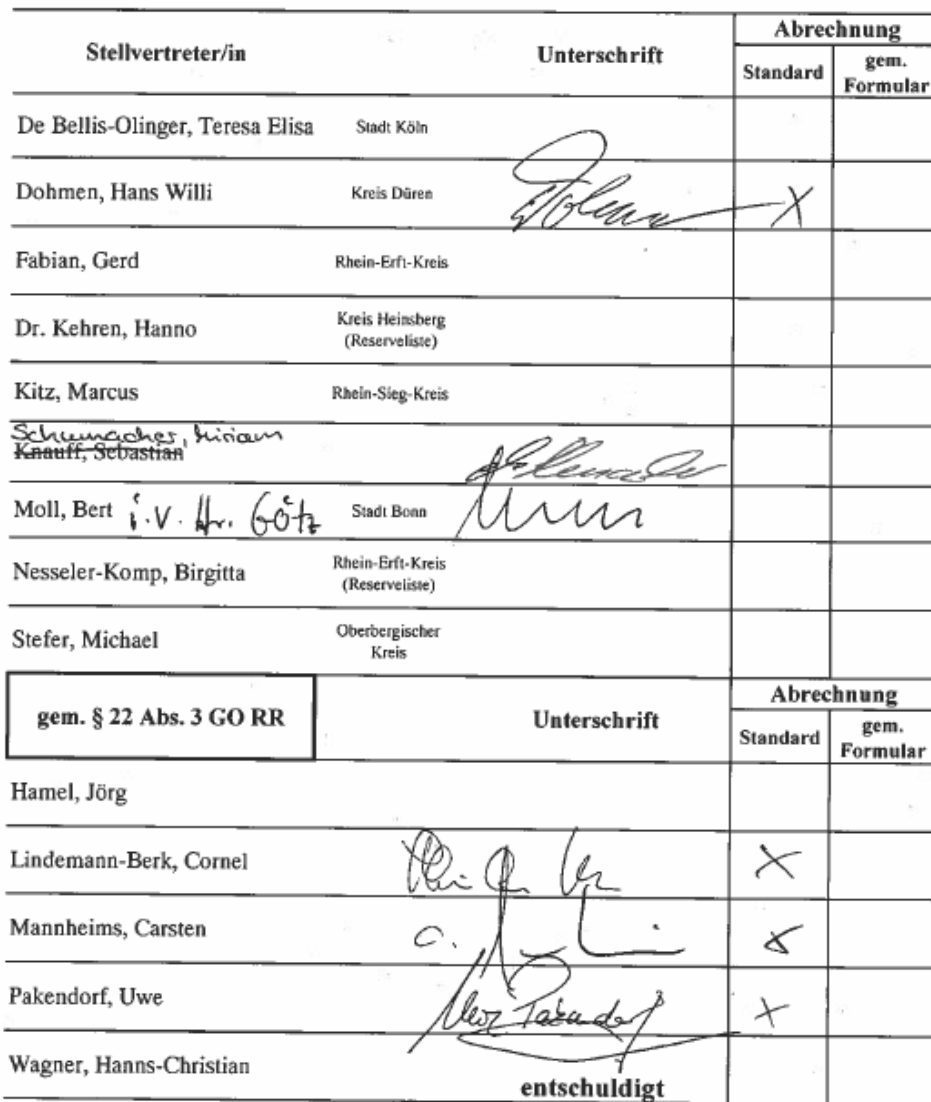 Stellvertreter/in Unterschrift Abrechnung
Standard gem. Formular
De Bellis-Olinger, Teresa Elisa Stadt Köln
Dohmen, Hans Willi Kreis Düren X
Fabian, Gerd Rhein-Erft-Kreis
Dr. Kehren, Hanno Kreis Heinsberg
(Reserveliste)
Kitz, Marcus Rhein-Sieg-Kreis
Schumacher, Miriam
Knauff, Sebastian
Moll, Bert i.V. Hr. Götz Stadt Bonn
Nesseler-Komp, Birgitta Rhein-Erft-Kreis
(Reserveliste)
Stefer, Michael Oberbergischer
Kreis
gem. § 22 Abs. 3 GO RR Unterschrift Abrechnung
Standard gem. Formular
Hamel, Jörg
Lindemann-Berk, Cornel X
Mannheims, Carsten X
Pakendorf, Uwe X
Wagner, Hanns-Christian entschuldigt